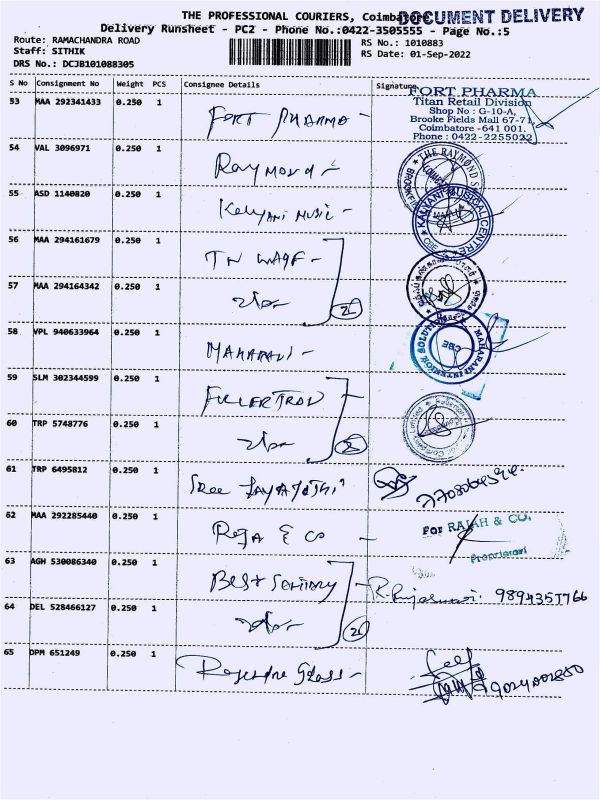 THE PROFESSIONAL COURIERS, Coimbatore
DOCUMENT DELIVERY
Delivery Runsheet - PC2 - Phone No.:0422-3505555 - Page No.:5
Route: RAMACHANDRA ROAD
RS No.: 1010883
Staff: SITHIK
RS Date: 01-Sep-2022
DRS No.: DCJB101088305
S No Consignment No Weight PCS Consignee Details Signature
53 MAA 292341433 0.250 1 FORT PHARMA -
FORT PHARMA
Titan Retail Division
Shop No : G-10-A,
Brooke Fields Mall 67-71,
Coimbatore -641 001.
Phone : 0422-2255022
54 VAL 3096971 0.250 1 Raymond -
THE RAYMOND
55 ASD 1140820 0.250 1 Kalyani Music -
KALYANI MUSICAL CENTRE
56 MAA 294161679 0.250 1 TN WAQF -
57 MAA 294164342 0.250 1
58 VPL 940633964 0.250 1 MAHARANI -
MAHARANI INTERIOR SOLUTION
CBE
59 SLM 302344599 0.250 1 FULLERTRON -
60 TRP 5748776 0.250 1
61 TRP 6495812 0.250 1 Sree Jayajothi
62 MAA 292285440 0.250 1 Raja & CO -
For RAJAH & CO.
Proprietor
63 AGH 530086340 0.250 1 Best Sanitary
9894351766
64 DEL 528466127 0.250 1
65 DPM 651249 0.250 1 Rajendra Glass -